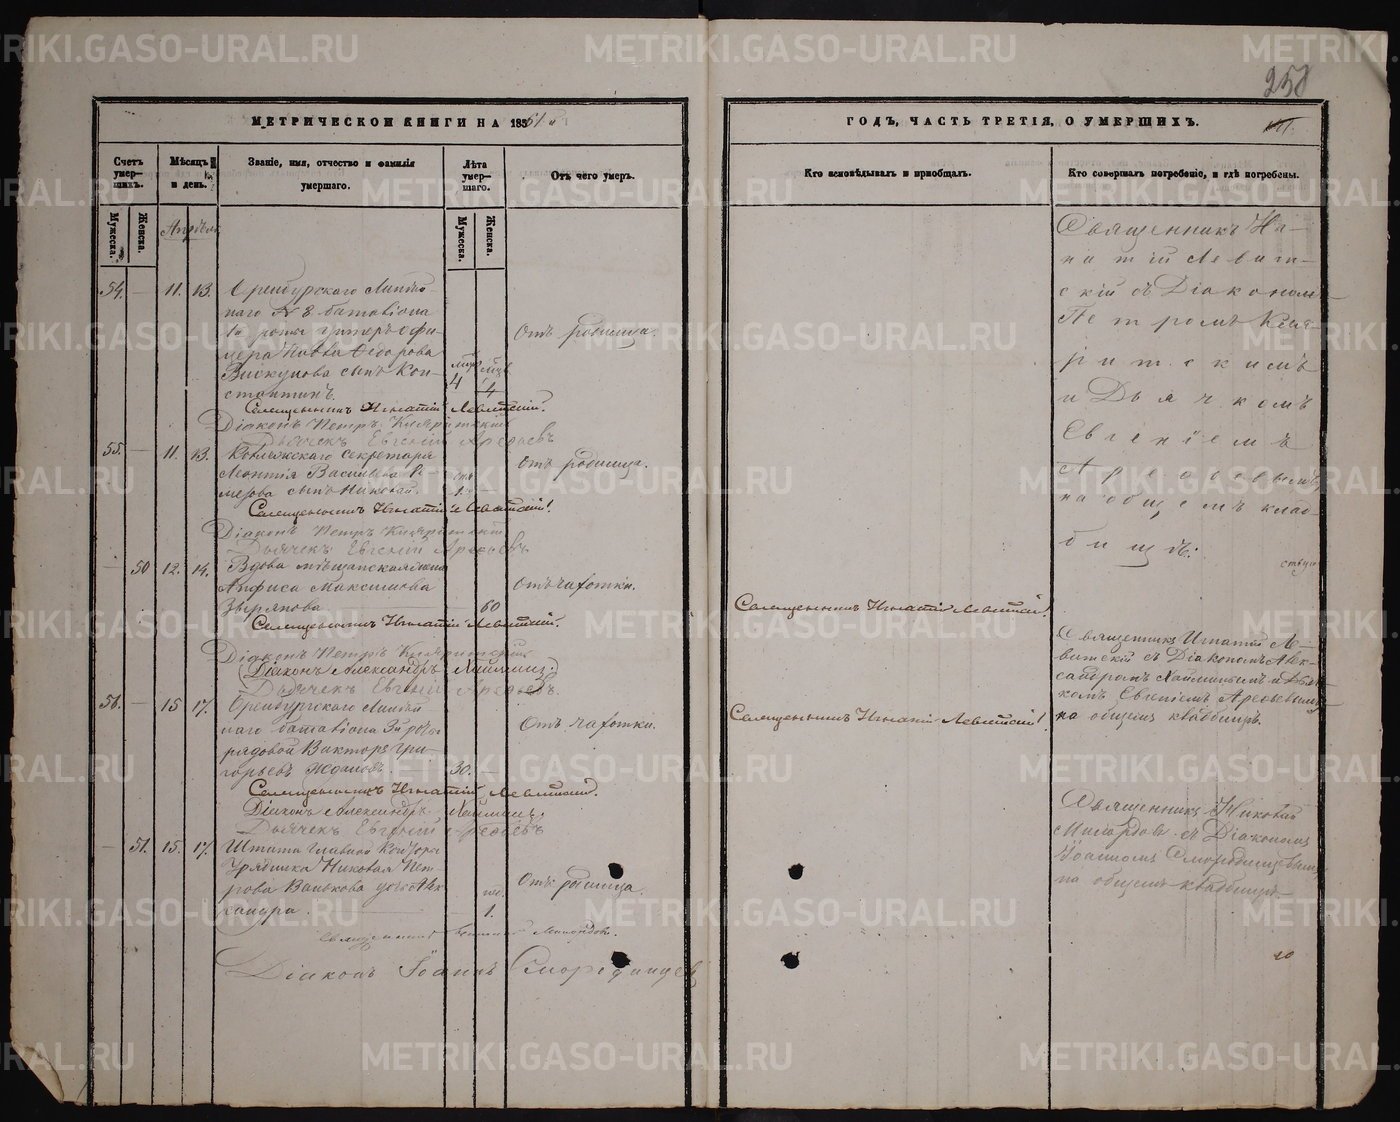 METRIKI.GASO-URAL.RU
258
МЕТРИЧЕСКОЙ КНИГИ НА 1851й
Счетъ умер-шихъ.
Мужеска.
Женска.
Мѣсяцъ и день.
Званіе, имя, отчество и фамилія умершаго.
Лѣта умер-шаго.
Мужеска.
Женска.
Отъ чего умеръ.
Апрѣль
54. — 11. 13. Оренбургскаго Линѣй-
наго № 8 баталіона
роты Унтеръ Офи-
цера Павла Ѳедорова
Вискунова сынъ Кон-
стантинъ.
4
Отъ родимца.
Священникъ Игнатій Левитскій.
Діаконъ Петръ
Дьячекъ Евгеній Арефьевъ
55. — 11. 13. Коллежскаго Секретаря
Леонтія Васильева Ре-
мезова сынъ Николай.
1.
Отъ родимца.
Священникъ Игнатій Левитскій!
Діаконъ Петръ
Дьячекъ Евгеній Арефьевъ
— 50 12. 14. Вдова мѣщанская жена
Анфиса Максимова
Звѣрякова
60
Отъ чахотки.
Священникъ Игнатій Левитскій.
Діаконъ Петръ
(Діаконъ Александръ
Дьячекъ Евгеній Арефьевъ.
56. — 15 17. Оренбургскаго Линѣй
наго баталіона 3й роты
рядовой Викторъ Гри-
горьевъ Ждановъ.
30. —
Отъ чахотки.
Священникъ Игнатій Левитскій.
Діаконъ Александръ
Дьячекъ Евгеній Арефьевъ
— 51. 15. 17. Штата Главной Конторы
Урядника Николая Пет-
рова Ванькова дочь Алек
сандра.
1.
Отъ родимца.
Священникъ Николай Милордовъ.
Діаконъ Іоаннъ Смородинцевъ
ГОДЪ, ЧАСТЬ ТРЕТІЯ, О УМЕРШИХЪ.
Кто исповѣдывалъ и пріобщалъ.
Кто совершалъ погребеніе, и гдѣ погребены.
Священникъ Игнатій Левитскій!
Священникъ Игнатій Левитскій!
Священникъ Иг-
натій Левит-
скій съ Діакономъ
Петромъ
и Дьячкомъ
Евгеніемъ
Арефьевымъ
на общемъ клад-
бищѣ.
Священникъ Игнатій Ле-
витскій съ Діакономъ Алек-
сандромъ и Дьяч-
комъ Евгеніемъ Арефьевымъ
на общемъ кладбищѣ.
Священникъ Николай
Милордовъ съ Діакономъ
Іоанномъ Смородинцевымъ
на общемъ кладбищѣ.